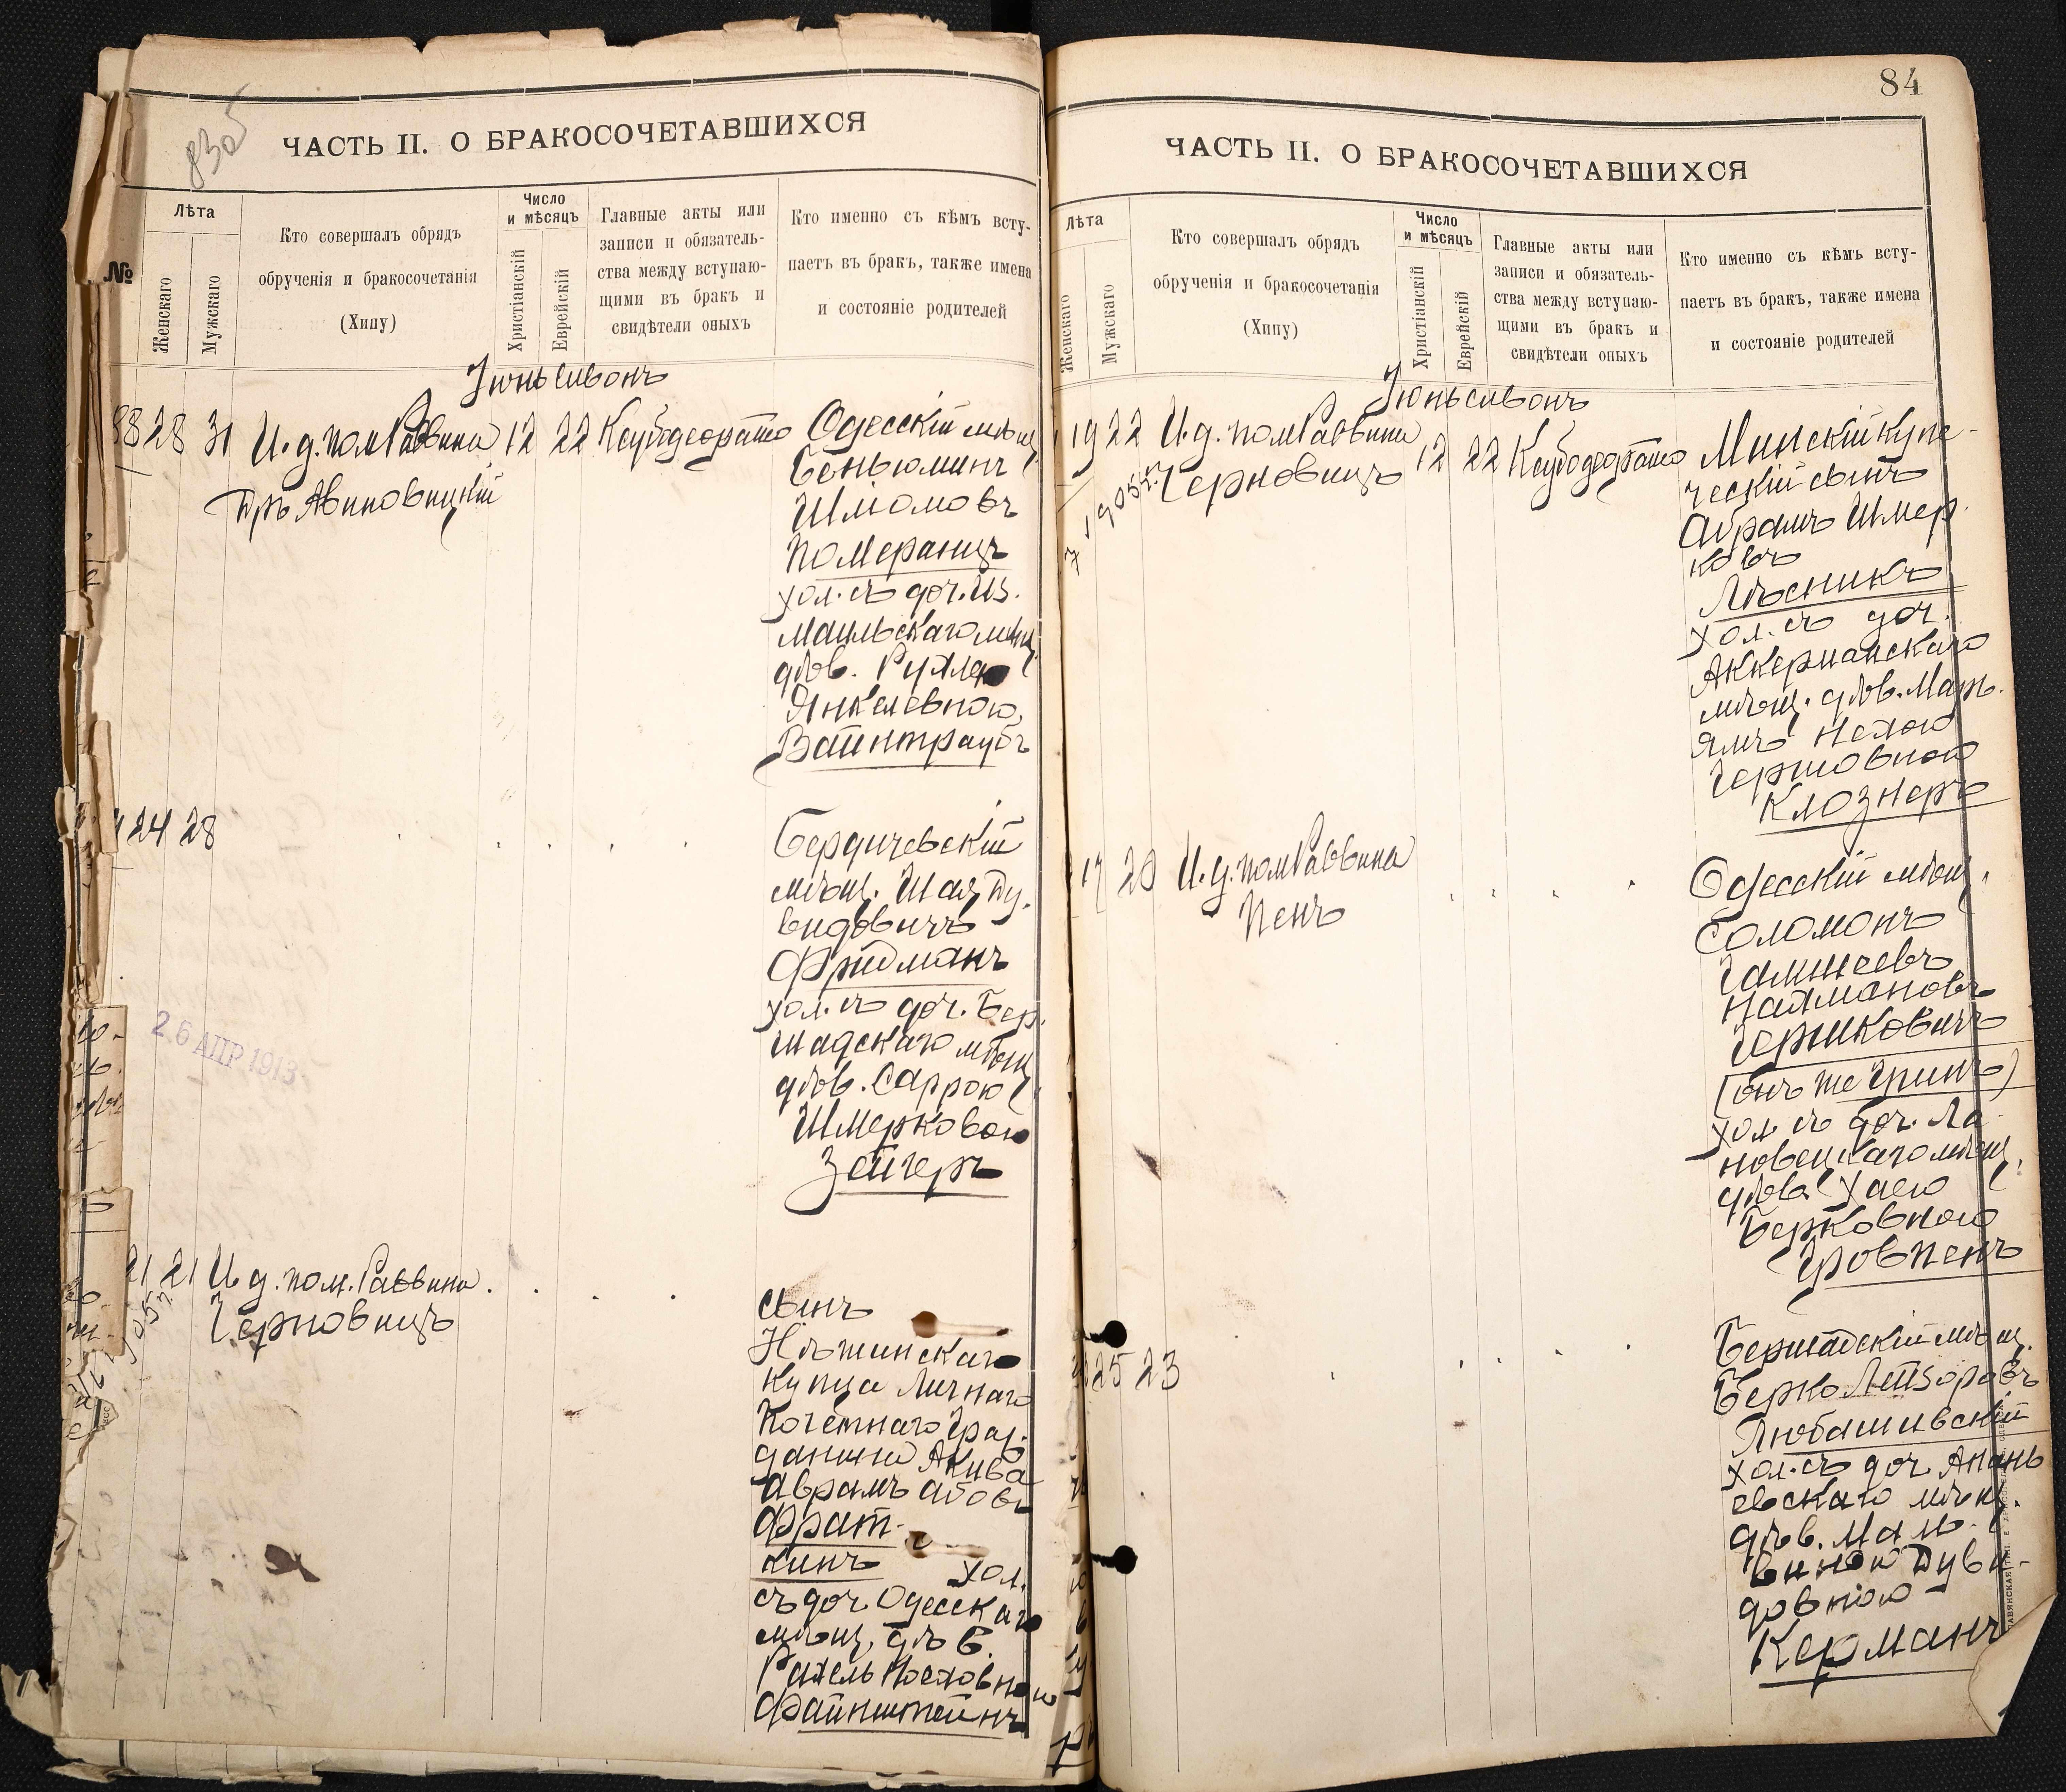 83об
ЧАСТЬ II. О БРАКОСОЧЕТАВШИХСЯ
№
Лѣта
Женскаго
Мужскаго
Кто совершалъ обрядъ
обрученія и бракосочетанія
(Хипу)
Число
и мѣсяцъ
Христіанскій
Еврейскій
Главные акты или
записи и обязатель-
ства между вступаю-
щими въ бракъ и
свидѣтели оныхъ
Кто именно съ кѣмъ всту-
паетъ въ бракъ, также имена
и состояніе родителей
Іюнь Сивонъ
28 31 И. д. пом Раввина 12 22
Дръ Авиновицкій
Одесскій мѣщ.
Беньюминъ
Шліомовъ
Померанцъ
хол. съ доч. Из.
маильскаго мѣщ.
дѣв. Рухлею
Янкелевною
Вайнтраубъ
24 28
Бердичевскій
мѣщ. Шая Ду.
видовичъ
Фридманъ
хол. съ доч. Бер.
шадскаго мѣщ.
дѣв. Саррою
Шмерковою
Зейгеръ
26 АПР 1913
21 21 И. д. пом. Раввина
Черновицъ
сынъ
Нѣжинскаго
купца Личнаго
Почетнаго Граж.
данина Акива
Аврамъ Абовъ
Фрат-
кинъ хол.
съ доч. Одесскаго
мѣщ. дѣв.
Рахель Іосіовною
Файнштейнъ
84
ЧАСТЬ II. О БРАКОСОЧЕТАВШИХСЯ
Лѣта
Женскаго
Мужскаго
Кто совершалъ обрядъ
обрученія и бракосочетанія
(Хипу)
Число
и мѣсяцъ
Христіанскій
Еврейскій
Главные акты или
записи и обязатель-
ства между вступаю-
щими въ бракъ и
свидѣтели оныхъ
Кто именно съ кѣмъ всту-
паетъ въ бракъ, также имена
и состояніе родителей
Іюнь Сивонъ
19 22 И. д. пом Раввина 12 22
Черновицъ
Минскій купе-
ческій сынъ
Абрамъ Шмер.
ковъ
Лѣсникъ
хол. съ доч.
Аккерманскаго
мѣщ. дѣв. Мар.
ямъ Нехою
Гершовною
Клознеръ
17 20 И. д. пом Раввина
Пенъ
Одесскій мѣщ.
Соломонъ
Нахмановъ
Герциковичъ
(онъ же Гринъ)
хол. съ доч. Ла
новецкаго мѣщ.
дѣв. Хаею
Берковною
Гровпенъ
25 23
Бершадскій мѣщ.
Берко Лейзоровъ
Любашивскій
хол. съ доч. Анань
евскаго мѣщ.
дѣв. Маль-
виною Дуви-
довною
Керманъ